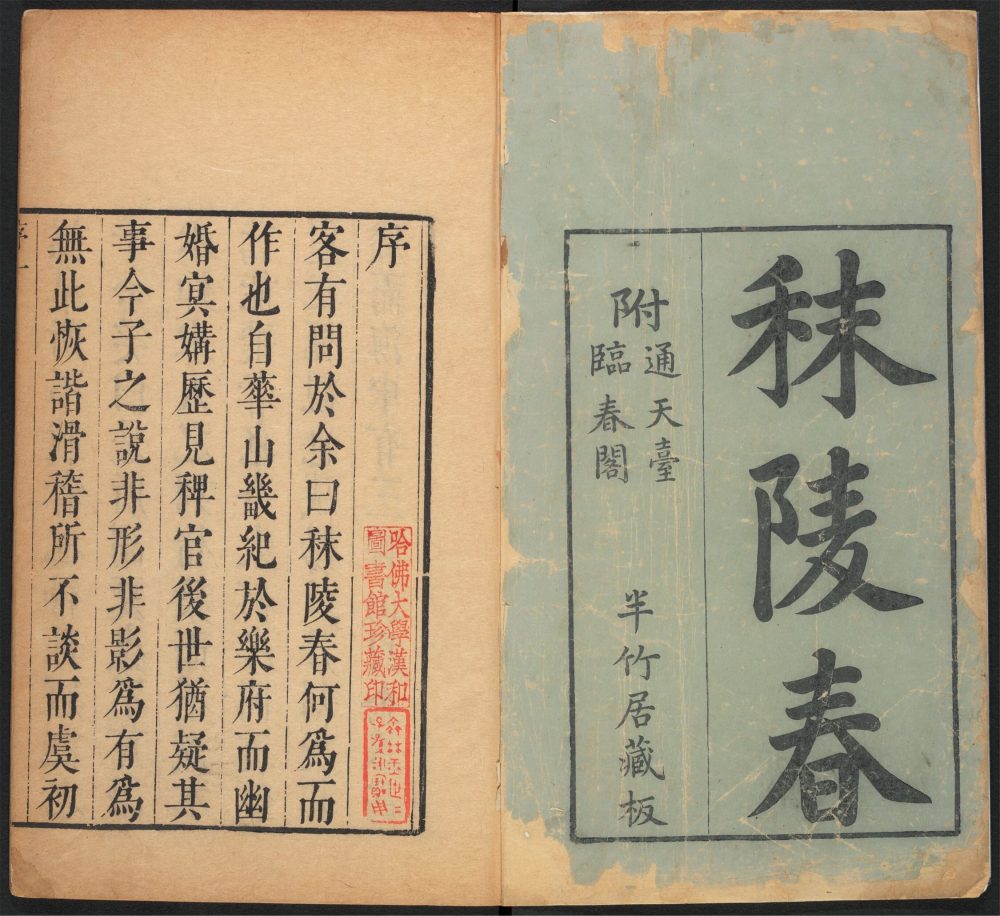 秣陵春
附
通天臺
臨春閣
半竹居藏板
序
客有問於余曰秣陵春何為而
作也自華山畿紀於樂府而幽
婚㝠媾歷見稗官後世猶疑其
事今子之說非形非影爲有爲
無此恢諧滑稽所不談而虞初
序一
哈佛大學漢和
圖書館珍藏印